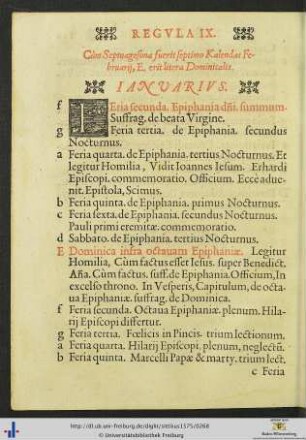 REGVLA IX.
Cùm Septuagesima fuerit septimo Kalendas Fe-
bruarij, E, erit litera Dominicalis.
IANVARIVS.
f FEria secunda. Epiphania dñi. summum.
Suffrag. de beata Virgine.
g Feria tertia. de Epiphania. secundus
Nocturnus.
a Feria quarta. de Epiphania. tertius Nocturnus. Et
legitur Homilia, Vidit Ioannes Iesum. Erhardi
Episcopi. commemoratio. Officium. Ecce adue-
nit. Epistola, Scimus.
b Feria quinta. de Epiphania. primus Nocturnus.
c Feria sexta. de Epiphania. secundus Nocturnus.
Pauli primi eremitæ. commemoratio.
d Sabbato. de Epiphania. tertius Nocturnus.
E Dominica infra octauam Epiphaniæ. Legitur
Homilia, Cùm factus esset Iesus. super Benedict.
Aña. Cùm factus. suff. de Epiphania. Officium, In
excelso throno. In Vesperis, Capitulum, de octa-
ua Epiphaniæ. suffrag. de Dominica.
f Feria secunda. Octaua Epiphaniæ. plenum. Hila-
rij Episcopi differtur.
g Feria tertia. Fœlicis in Pincis. trium lectionum.
a Feria quarta. Hilarij Episcopi. plenum, neglectū.
b Feria quinta. Marcelli Papæ & marty. trium lect.
c Feria
http://dl.ub.uni-freiburg.de/diglit/sittikus1575/0268
© Universitätsbibliothek Freiburg